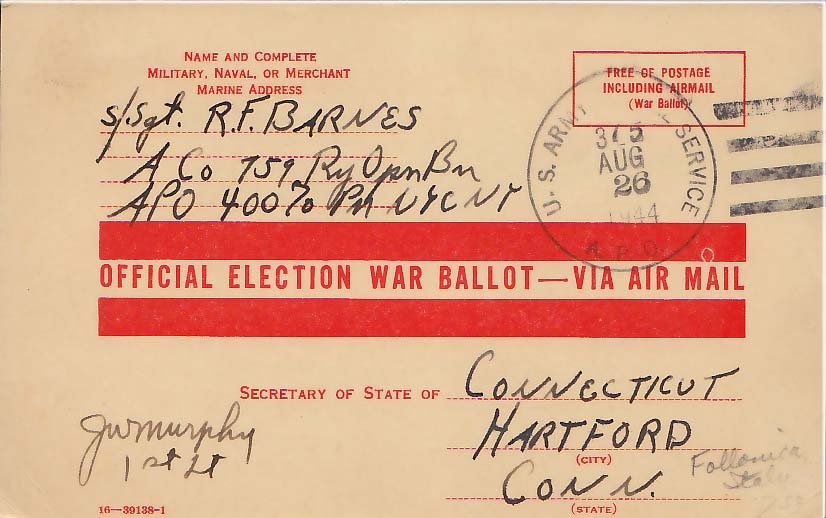 NAME AND COMPLETE
MILITARY, NAVAL, OR MERCHANT
MARINE ADDRESS
S/Sgt. R.F. BARNES
A Co 759 Ry Opn Bn
APO 400 % PM NYC NY
FREE OF POSTAGE
INCLUDING AIRMAIL
(War Ballot)
U. S. ARMY SERVICE
AUG
26
1944
A. P. O.
OFFICIAL ELECTION WAR BALLOT—VIA AIR MAIL
SECRETARY OF STATE OF CONNECTICUT
HARTFORD
(CITY)
CONN.
(STATE)
JW Murphy
1st Lt
Follonica,
Italy
16—39138-1